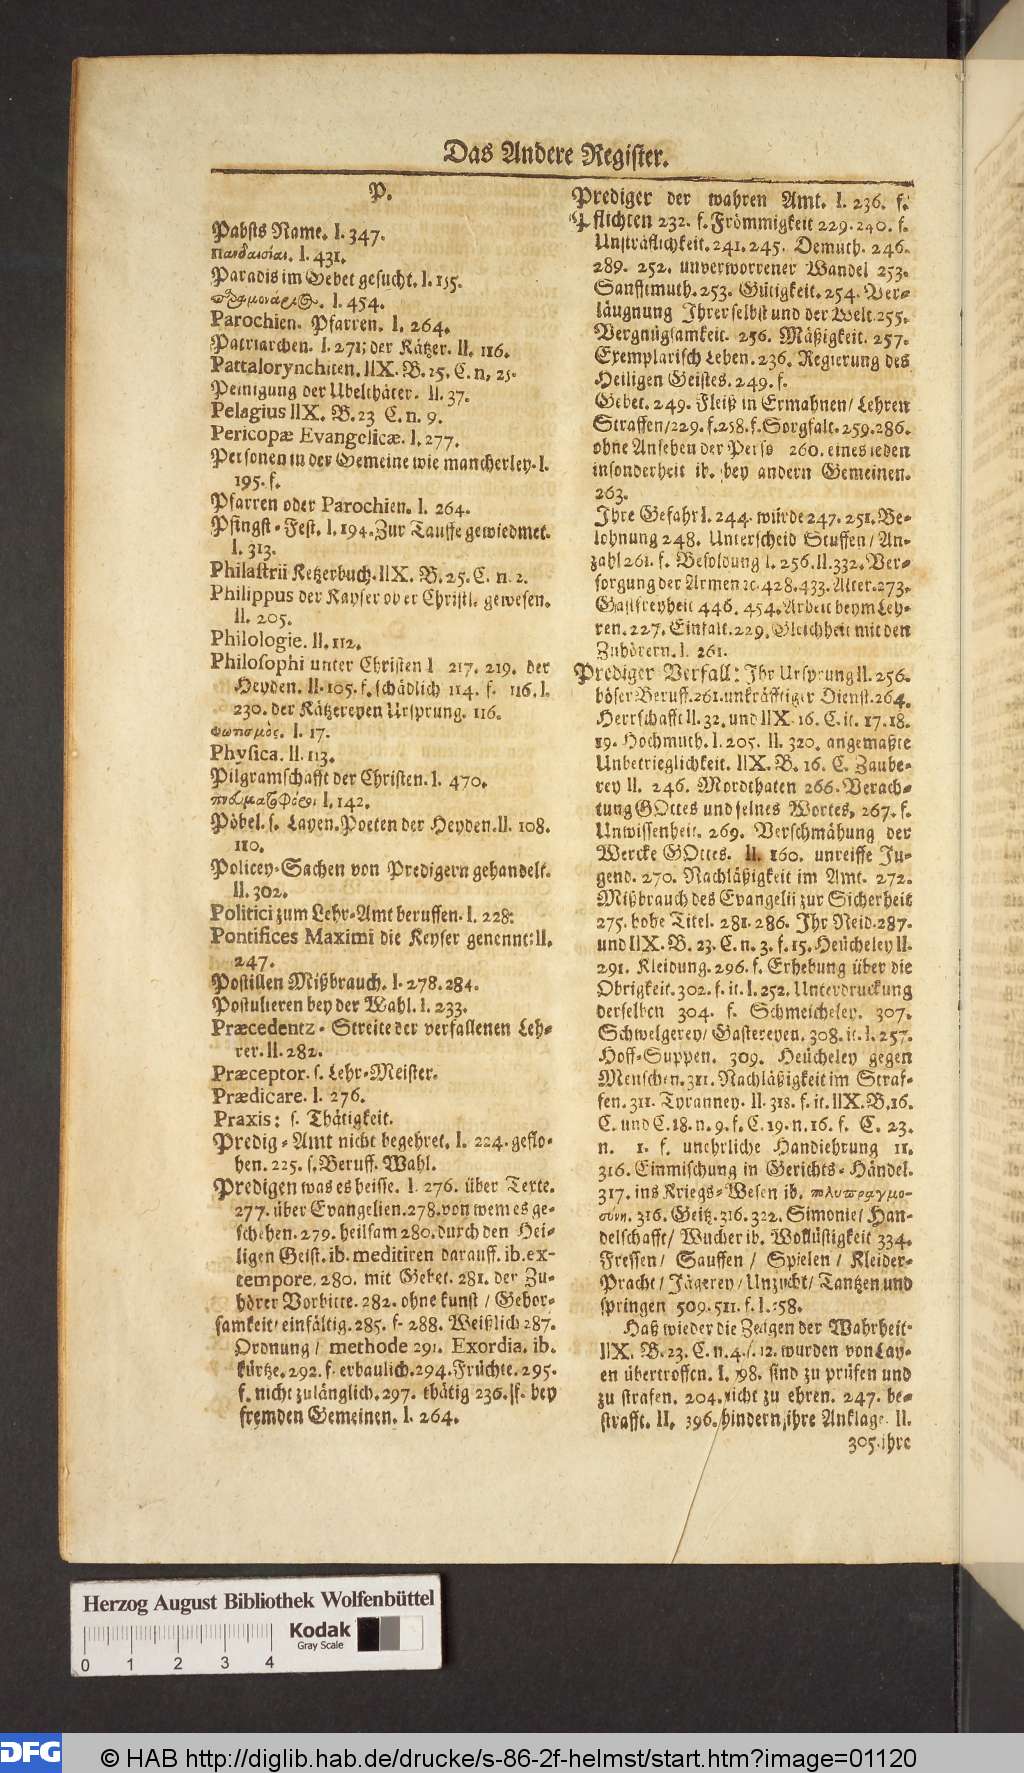 Das Andere Register.
P.
Pabsts Name. I. 347.
Πανδαισίαι. I. 431.
Paradis im Gebet gesucht. I. 135.
I. 454.
Parochien. Pfarren. I. 264.
Patriarchen. I. 271; der Kätzer. II. 116.
Pattalorynchiten. IIX. B. 25. C. n. 25.
Peinigung der Ubelthäter. II. 37.
Pelagius IIX. B. 23 C. n. 9.
Pericopæ Evangelicæ. I. 277.
Personen in der Gemeine wie mancherley. I.
195. f.
Pfarren oder Parochien. I. 264.
Pfingst-Fest. I. 194. Zur Tauffe gewiedmet.
I. 313.
Philastrii Ketzerbuch. IIX. B. 25. C. n. 2.
Philippus der Kayser ob er Christl. gewesen.
II. 205.
Philologie. II. 112.
Philosophi unter Christen I 217. 219. der
Heyden. II. 105. f. schädlich 114. f. 116. I.
230. der Kätzereyen Ursprung. 116.
Φωτισμὸς. I. 17.
Physica. II. 113.
Pilgramschafft der Christen. I. 470.
πνευματοφόροι I. 142.
Pöbel. s. Layen. Poeten der Heyden. II. 108.
110.
Policey-Sachen von Predigern gehandelt.
II. 302.
Politici zum Lehr-Amt beruffen. I. 228:
Pontifices Maximi die Keyser genennt: II.
247.
Postillen Mißbrauch. I. 278. 284.
Postulieren bey der Wahl. I. 233.
Præcedentz-Streite der verfallenen Leh-
rer. II. 282.
Præceptor. s. Lehr-Meister.
Prædicare. I. 276.
Praxis: s. Thätigkeit.
Predig-Amt nicht begehret. I. 224. geflo-
hen. 225. s. Beruff. Wahl.
Predigen was es heisse. I. 276. über Texte.
277. über Evangelien. 278. von wem es ge-
schehen. 279. heilsam 280. durch den Hei-
ligen Geist. ib. meditiren darauff. ib. ex-
tempore. 280. mit Gebet. 281. der Zu-
hörer Vorbitte. 282. ohne kunst / Gebor-
samkeit / einfältig. 285. f. 288. Weißlich 287.
Ordnung / methode 291. Exordia. ib.
kürtze. 292. f. erbaulich. 294. Früchte. 295.
f. nicht zulänglich. 297. thätig 236. ff. bey
fremden Gemeinen. I. 264.
Prediger der wahren Amt. I. 236. f.
Pflichten 232. f. Frömmigkeit 229. 240. f.
Unsträflichkeit. 241. 245. Demuth. 246.
289. 252. unverworrener Wandel 253.
Sanfftmuth. 253. Gütigkeit. 254. Ver-
läugnung Ihrer selbst und der Welt. 255.
Vergnügsamkeit. 256. Mäßigkeit. 257.
Exemplarisch Leben. 236. Regierung des
Heiligen Geistes. 249. f.
Gebet. 249. Fleiß in Ermahnen / Lehren
Straffen / 229. f. 258. f. Sorgfalt. 259. 286.
ohne Ansehen der Perso 260. eines jeden
insonderheit ib. bey andern Gemeinen.
263.
Ihre Gefahr I. 244. würde 247. 251. Be-
lohnung 248. Unterscheid Stuffen / An-
zahl 261. f. Besoldung I. 256. II. 332. Ver-
sorgung der Armen ec. 428. 433. Alter. 273.
Gastfreyheit 446. 454. Arbeit beym Leh-
ren. 227. Einfalt. 229. Gleichheit mit den
Zuhörern. I. 261.
Prediger Verfall: Ihr Ursprung II. 256.
böser Beruff. 261. unkräfftiger Dienst. 264.
Herrschafft II. 32. und IIX. 16. C. it. 17. 18.
19. Hochmuth. I. 205. II. 320. angemaßte
Unbetrieglichkeit. IIX. B. 16. C. Zaube-
rey II. 246. Mordthaten 266. Verach-
tung GOttes und seines Wortes, 267. f.
Unwissenheit. 269. Verschmähung der
Wercke GOttes. II. 160. unreiffe Ju-
gend. 270. Nachläßigkeit im Amt. 272.
Mißbrauch des Evangelii zur Sicherheit
275. hohe Titel. 281. 286. Ihr Neid. 287.
und IIX. B. 23. C. n. 3. f. 15. Heücheley II.
291. Kleidung. 296. f. Erhebung über die
Obrigkeit. 302. f. it. I. 252. Unterdruckung
derselben 304. f. Schmeicheley. 307.
Schwelgerey / Gastereyen. 308. it. I. 257.
Hoff-Suppen. 309. Heücheley gegen
Menschen. 311. Nachläßigkeit im Straf-
fen. 311. Tyranney. II. 318. f. it. IIX. B. 16.
C. und C. 18. n. 9. f. C. 19. n. 16. f. C. 23.
n. 1. f. unehrliche Handiehrung II.
316. Einmischung in Gerichts-Händel.
317. ins Kriegs-Wesen ib. πολυπραγμο-
σύνη. 316. Geitz. 316. 322. Simonie / Han-
delschafft / Wucher ib. Wollüstigkeit 334.
Fressen / Sauffen / Spielen / Kleider-
Pracht / Jägerey / Unzucht / Tantzen und
springen 509. 511. f. I. 258.
Haß wieder die Zeugen der Wahrheit.
IIX. B. 23. C. n. 4. f. 12. wurden von Lay-
en übertroffen. I. 198. sind zu prüfen und
zu strafen. 204. nicht zu ehren. 247. be-
strafft. II. 396. hindern, ihre Anklage II.
305. ihre
Herzog August Bibliothek Wolfenbüttel
Kodak
Gray Scale
0 1 2 3 4
DFG © HAB http://diglib.hab.de/drucke/s-86-2f-helmst/start.htm?image=01120